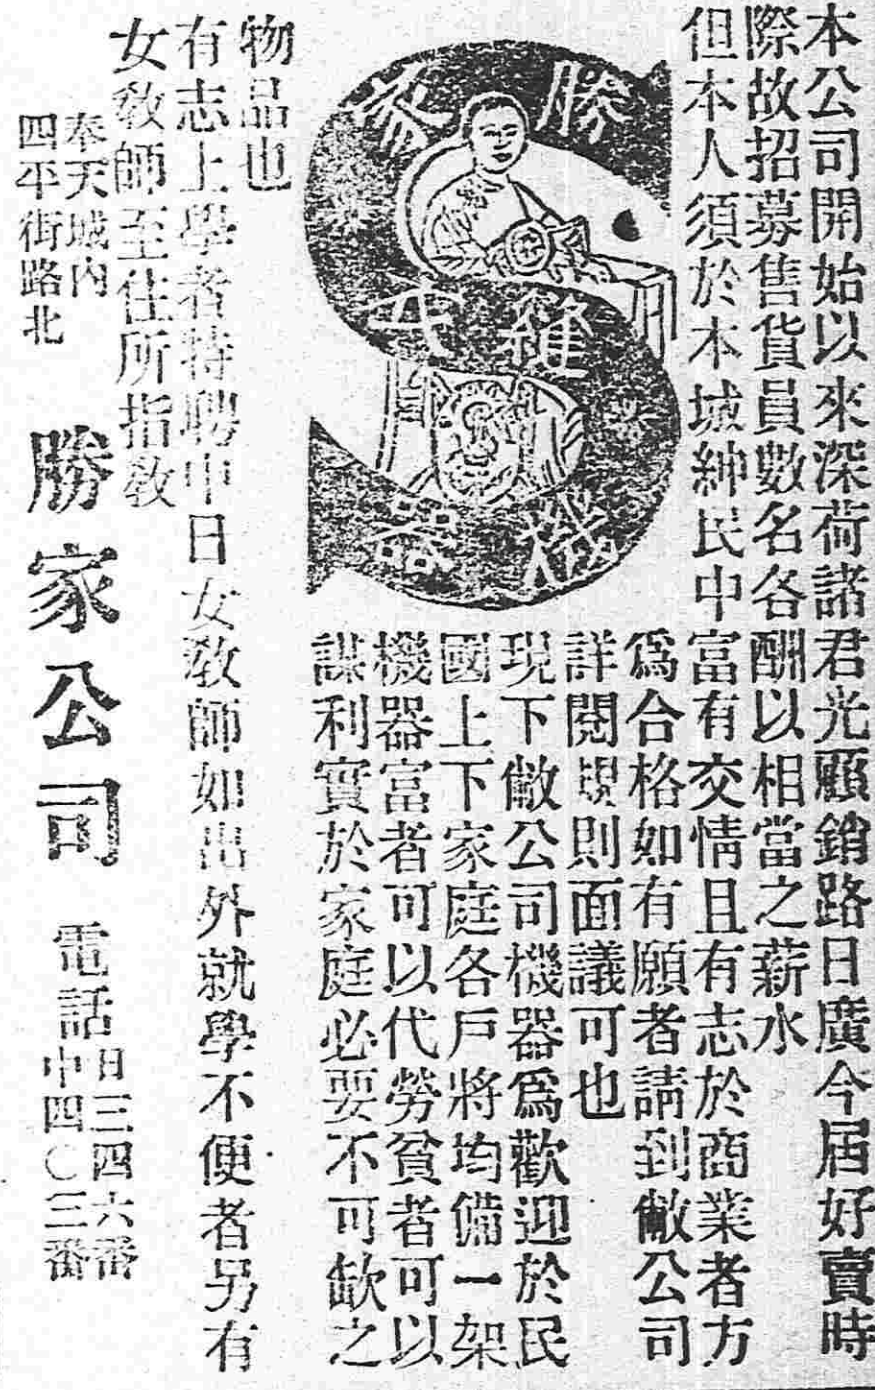 本公司開始以來深荷諸君光顧銷路日廣今屆好賣時
際故招募售貨員數名各酬以相當之薪水
但本人須於本城紳民中富有交情且有志於商業者方
爲合格如有願者請到敝公司
詳閱規則面議可也
勝家
縫衣
機器
現下敝公司機器爲歡迎於民
國上下家庭各戶將均備一架
機器富者可以代勞貧者可以
謀利實於家庭必要不可缺之
物品也
有志上學者特聘中日女教師如出外就學不便者另有
女教師至住所指教
奉天城內
四平街路北
勝家公司
電話
日三四六番
中四〇三番